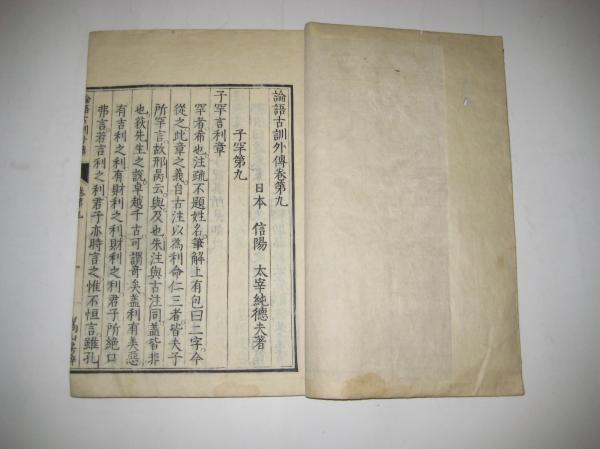 論語古訓外傳卷第九
日本 信陽 太宰純德夫著
子罕第九
子罕言利章
罕者希也注疏不題姓名筆解上有包曰二字今
從之此章之義自古注以為利命仁三者皆夫子
所罕言故邢昺云與及也朱注與古注同蓋皆非
也荻先生之說卓越千古可謂奇矣蓋利有美惡
有吉利之利有財利之利財利之利君子所絕口
弗言若吉利之利君子亦時言之惟不恒言雖孔
論語古訓外傳
卷第九
一